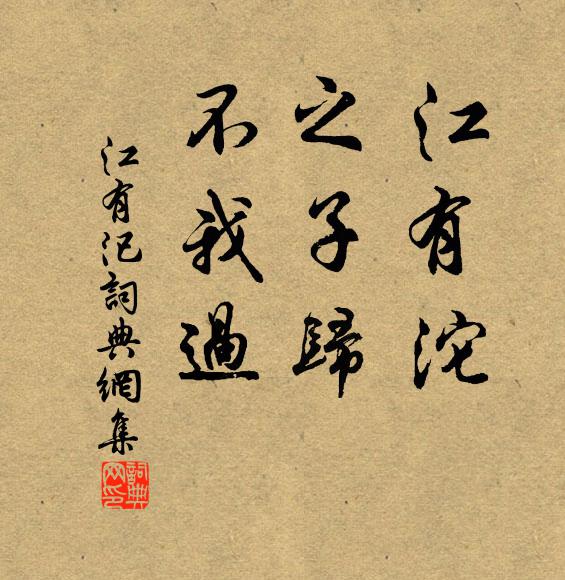 江有沱
之子歸
不我過
江有汜詞典網集
詞典网印